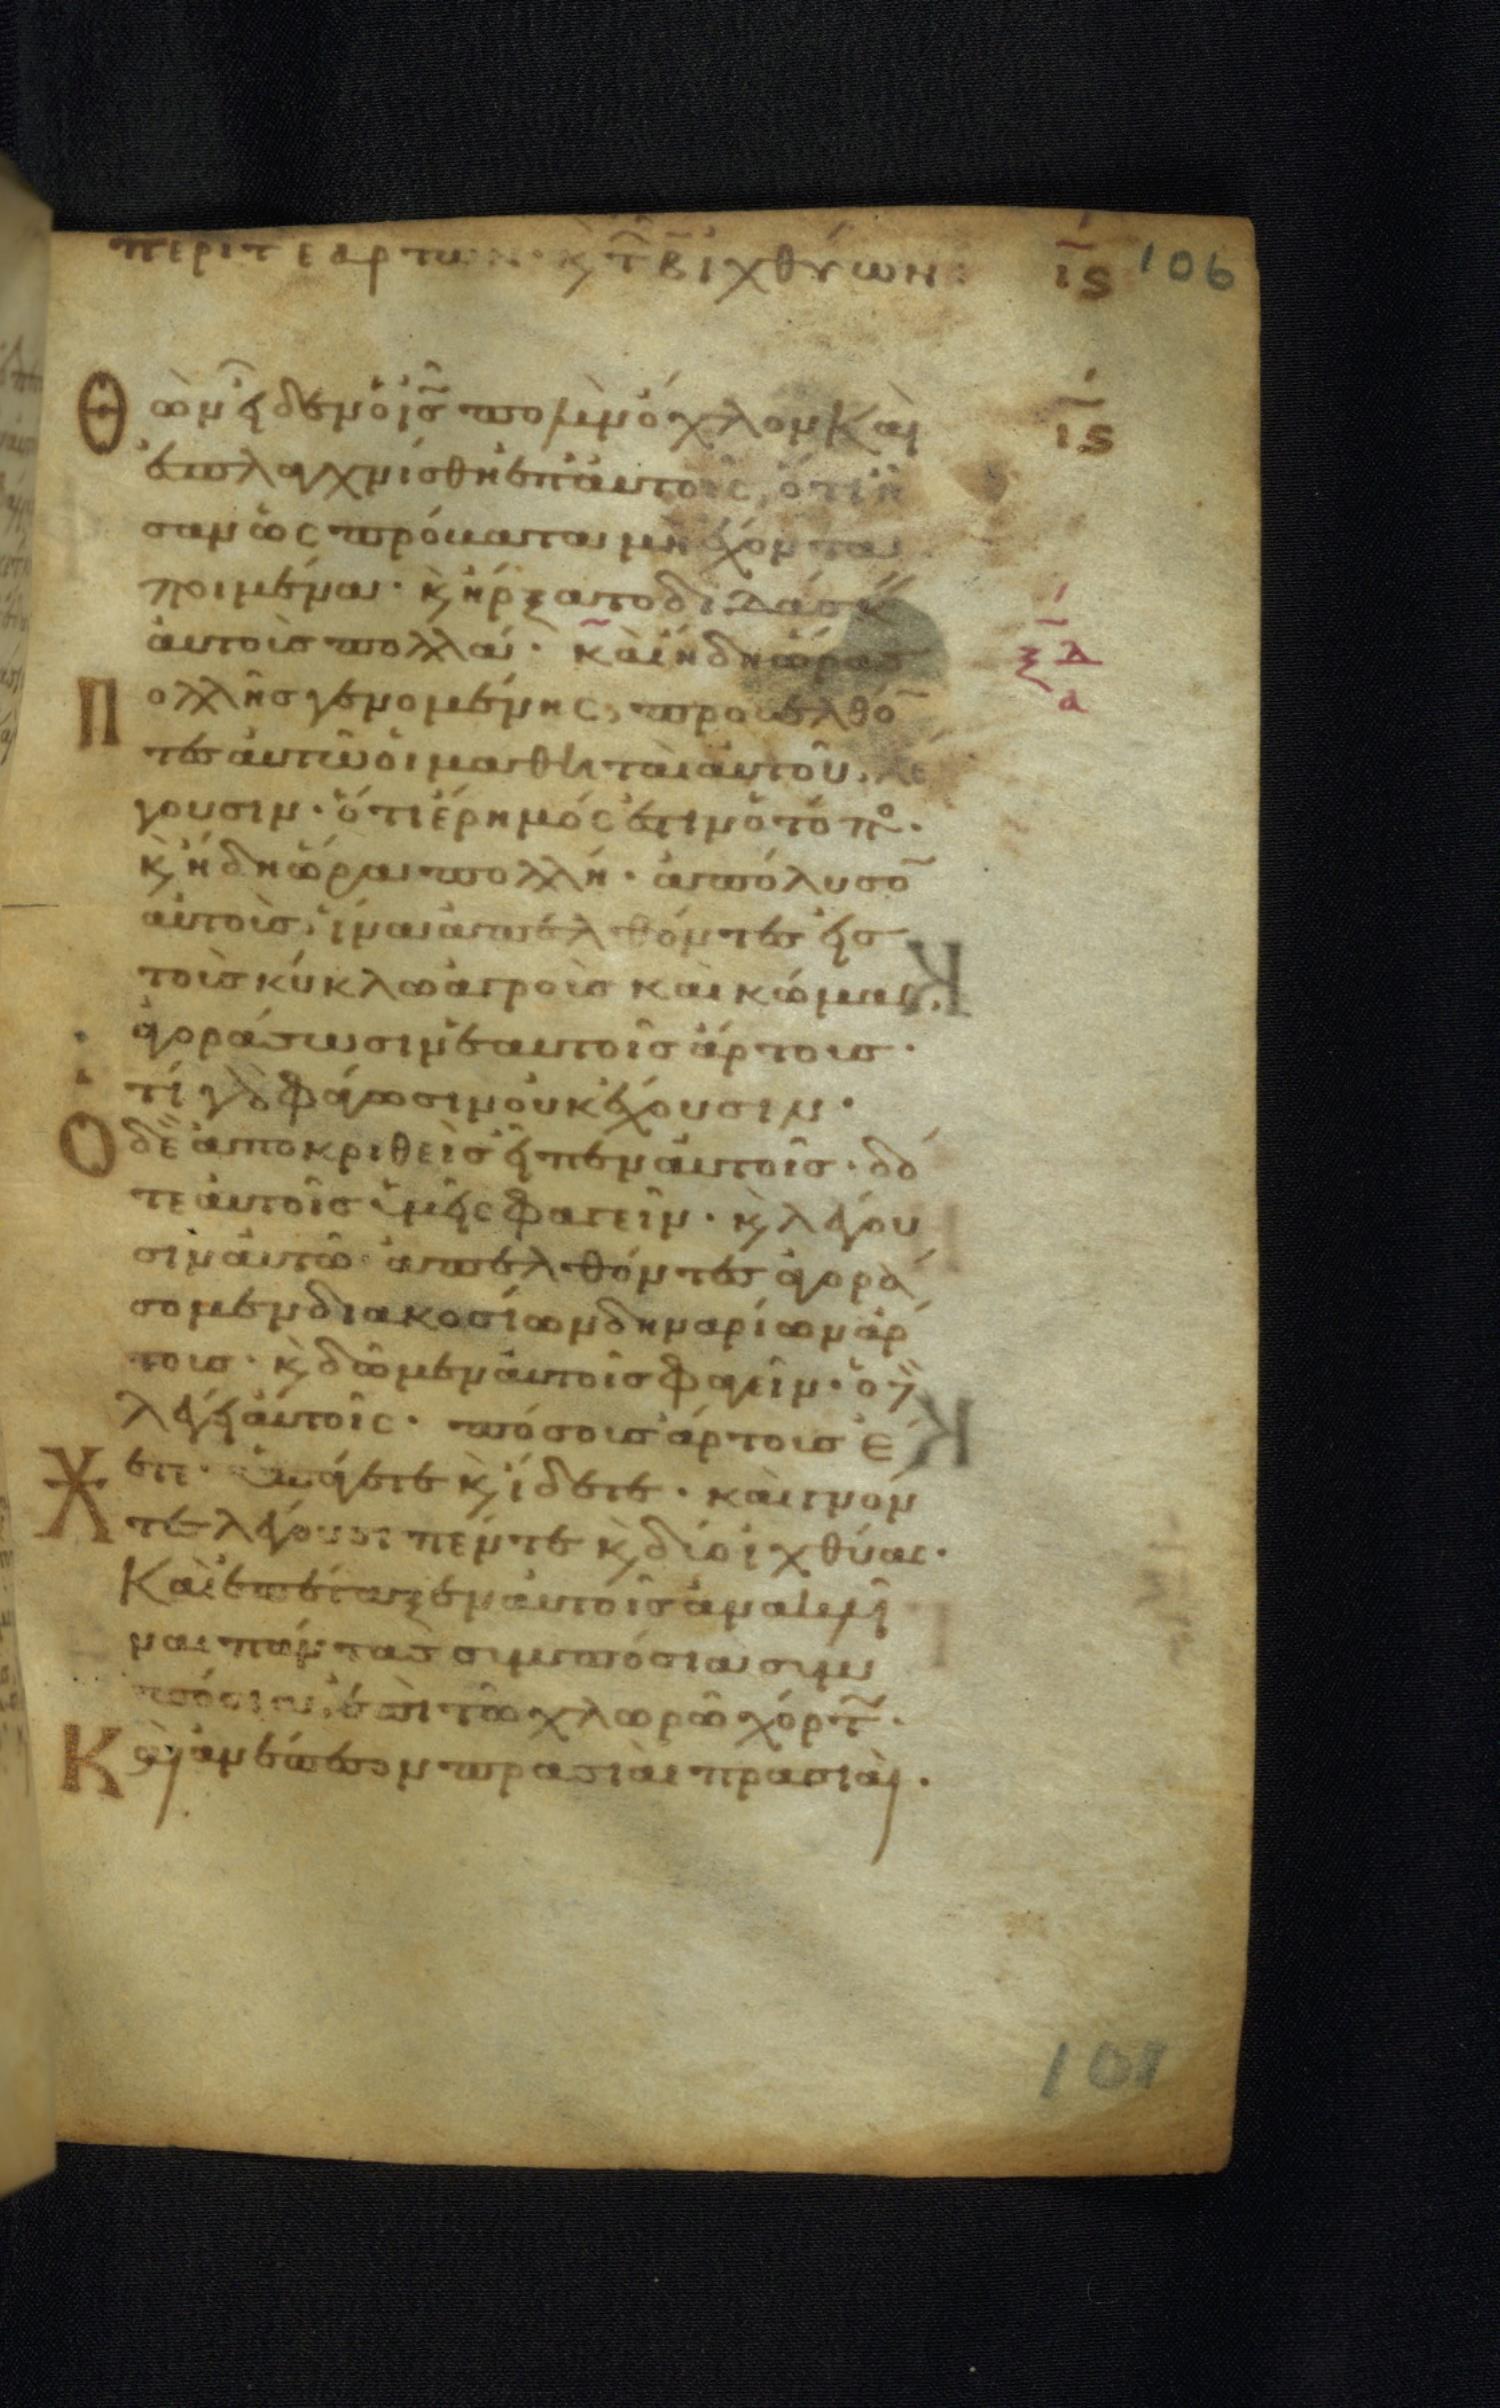 περι τ ε αρτων· κ τ β ιχθύων: ις 106
Θωὼν εἶδεν ὁ ις πολὺν ὄχλον καὶ ις
ἐσπλαγχνίσθη ἐπ αὐτοῖς, ὅτι ἦ
σαν ὡς πρόβατα μὴ ἔχοντα
ποιμένα· κ ἤρξατο διδάσκ
αὐτοὺς πολλά· καὶ ἤδη ὥρας ξδ α
Πολλῆς γενομένης, προσελθό
τες αὐτῶ οἱ μαθηταὶ αὐτοῦ, λέ
γουσιν· ὅτι ἔρημός ἐστιν ὁ τόπο·
κ ἤδη ὥρα πολλή· ἀπόλυσο
αὐτοὺς, ἵνα ἀπελθόντες εἰς
τοὺς κύκλω ἀγροὺς καὶ κώμας,
ἀγοράσωσιν ἑαυτοῖς ἄρτους·
τί γὰρ φάγωσιν οὐκ ἔχουσιν·
Ο δὲ ἀποκριθεὶς εἶπεν αὐτοῖς· δό
τε αὐτοῖς ὑμεῖς φαγεῖν· κ λέγου
σιν αὐτῶ ἀπελθόντες ἀγορά
σομεν διακοσίων δηναρίων ἄρ
τους· κ δῶμεν αὐτοῖς φαγεῖν· ὁ δὲ
λέγει αὐτοῖς· πόσους ἄρτους ἔ
χετε· ὑπάγετε κ ἴδετε· καὶ γνόν
τες λέγουσι πέντε κ δύο ἰχθύας·
Καὶ ἐπέταξεν αὐτοῖς ἀνακλῖ
ναι πάντας συμπόσια συμ
πόσια, ἐπὶ τῶ χλωρῶ χόρτ·
Καὶ ἀνέπεσον πρασιαὶ πρασιαὶ·
101